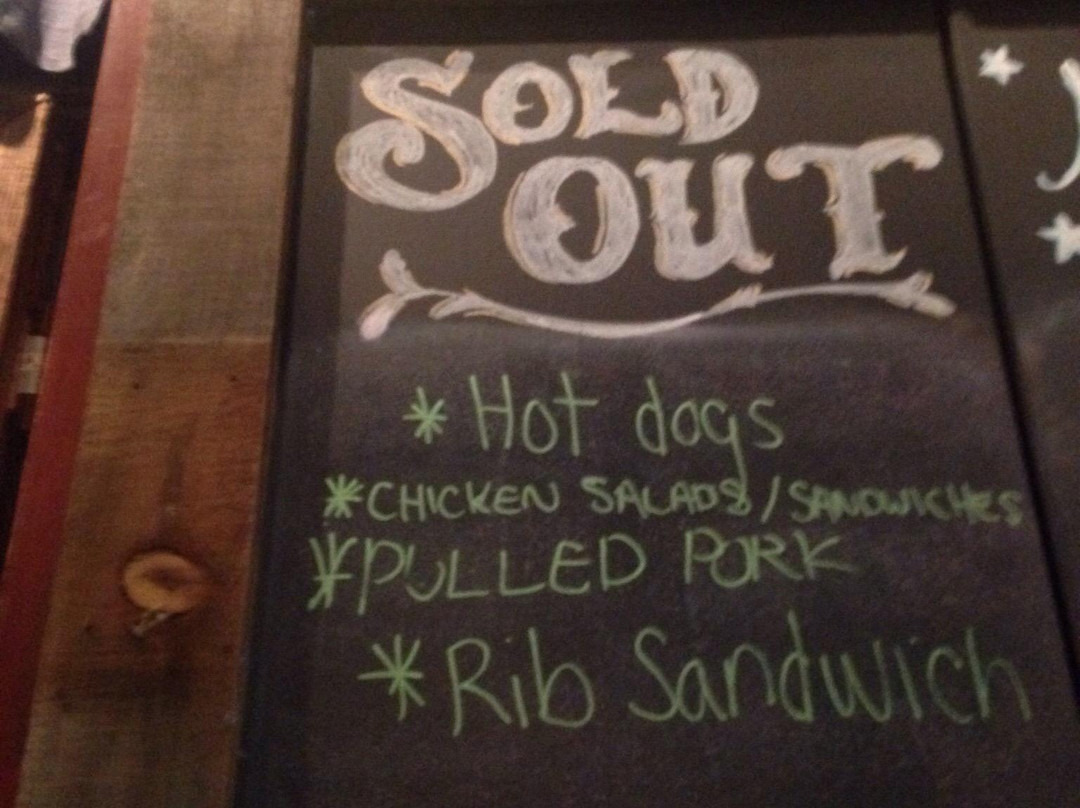 SOLD
OUT
* Hot dogs
* CHICKEN SALADS / SANDWICHES
* PULLED PORK
* Rib Sandwich